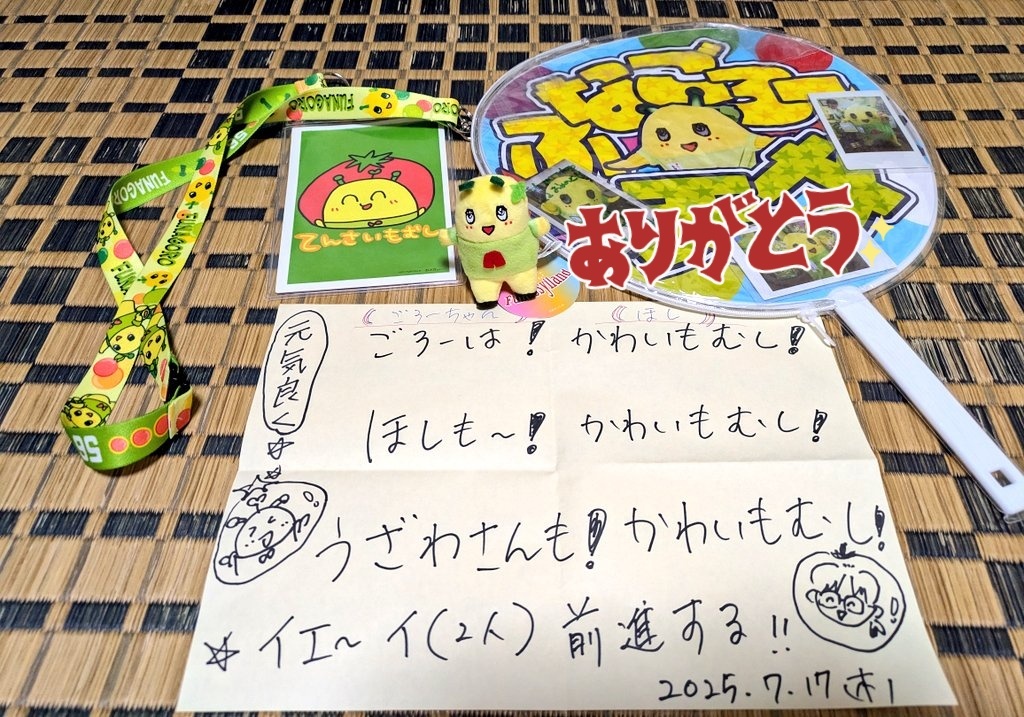 FUNAGORO
FUNAGORO
FUNAGORO
56
てんさいもむし
ふなごろー
ありがとう
Funassyiland
《ごろーちゃん》
《ほし》
元気良く
ごろーは! かわいもむし!
ほしも~! かわいもむし!
うざわさんも! かわいもむし!
☆イエ~イ(2人) 前進する!!
2025.7.17(木)